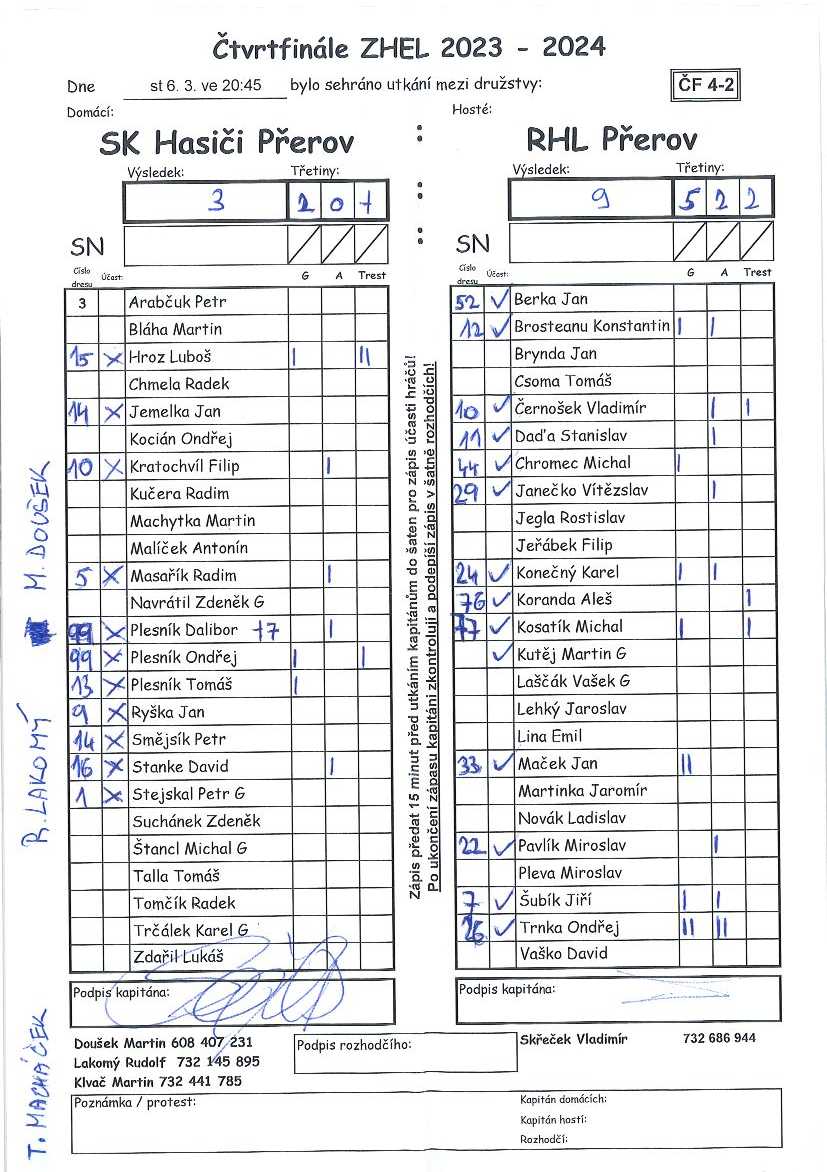 Čtvrtfinále ZHEL 2023 - 2024
Dne st 6. 3. ve 20:45 bylo sehráno utkání mezi družstvy: ČF 4-2
Domácí: Hosté:
SK Hasiči Přerov : RHL Přerov
Výsledek: Třetiny: Výsledek: Třetiny:
3 2 0 1 : 9 5 2 2
SN : SN
Číslo dresu Účast: G A Trest
3 Arabčuk Petr
Bláha Martin
15 × Hroz Luboš | ||
Chmela Radek
14 × Jemelka Jan
Kocián Ondřej
10 × Kratochvíl Filip |
Kučera Radim
Machytka Martin
Malíček Antonín
5 × Masařík Radim |
Navrátil Zdeněk G
× Plesník Dalibor 77 |
99 × Plesník Ondřej | |
13 × Plesník Tomáš |
9 × Ryška Jan
14 × Smějsík Petr
16 × Stanke David |
1 × Stejskal Petr G
Suchánek Zdeněk
Štancl Michal G
Talla Tomáš
Tomčík Radek
Trčálek Karel G
Zdařil Lukáš
Podpis kapitána:
Zápis předat 15 minut před utkáním kapitánům do šaten pro zápis účasti hráčů!
Po ukončení zápasu kapitáni zkontrolují a podepíší zápis v šatně rozhodčích!
Číslo dresu Účast: G A Trest
52 ✓ Berka Jan
12 ✓ Brosteanu Konstantin | |
Brynda Jan
Csoma Tomáš
10 ✓ Černošek Vladimír | |
11 ✓ Daďa Stanislav |
44 ✓ Chromec Michal |
29 ✓ Janečko Vítězslav |
Jegla Rostislav
Jeřábek Filip
24 ✓ Konečný Karel | |
76 ✓ Koranda Aleš |
77 ✓ Kosatík Michal | |
✓ Kutěj Martin G
Laščák Vašek G
Lehký Jaroslav
Lina Emil
33 ✓ Maček Jan ||
Martinka Jaromír
Novák Ladislav
22 ✓ Pavlík Miroslav |
Pleva Miroslav
7 ✓ Šubík Jiří | |
26 ✓ Trnka Ondřej || ||
Vaško David
Podpis kapitána:
Doušek Martin 608 407 231
Lakomý Rudolf 732 145 895
Klvač Martin 732 441 785
Podpis rozhodčího:
Skřeček Vladimír 732 686 944
Poznámka / protest:
Kapitán domácích:
Kapitán hostí:
Rozhodčí:
M. DOUŠEK
R. LAKOMÝ
T. MACHÁČEK